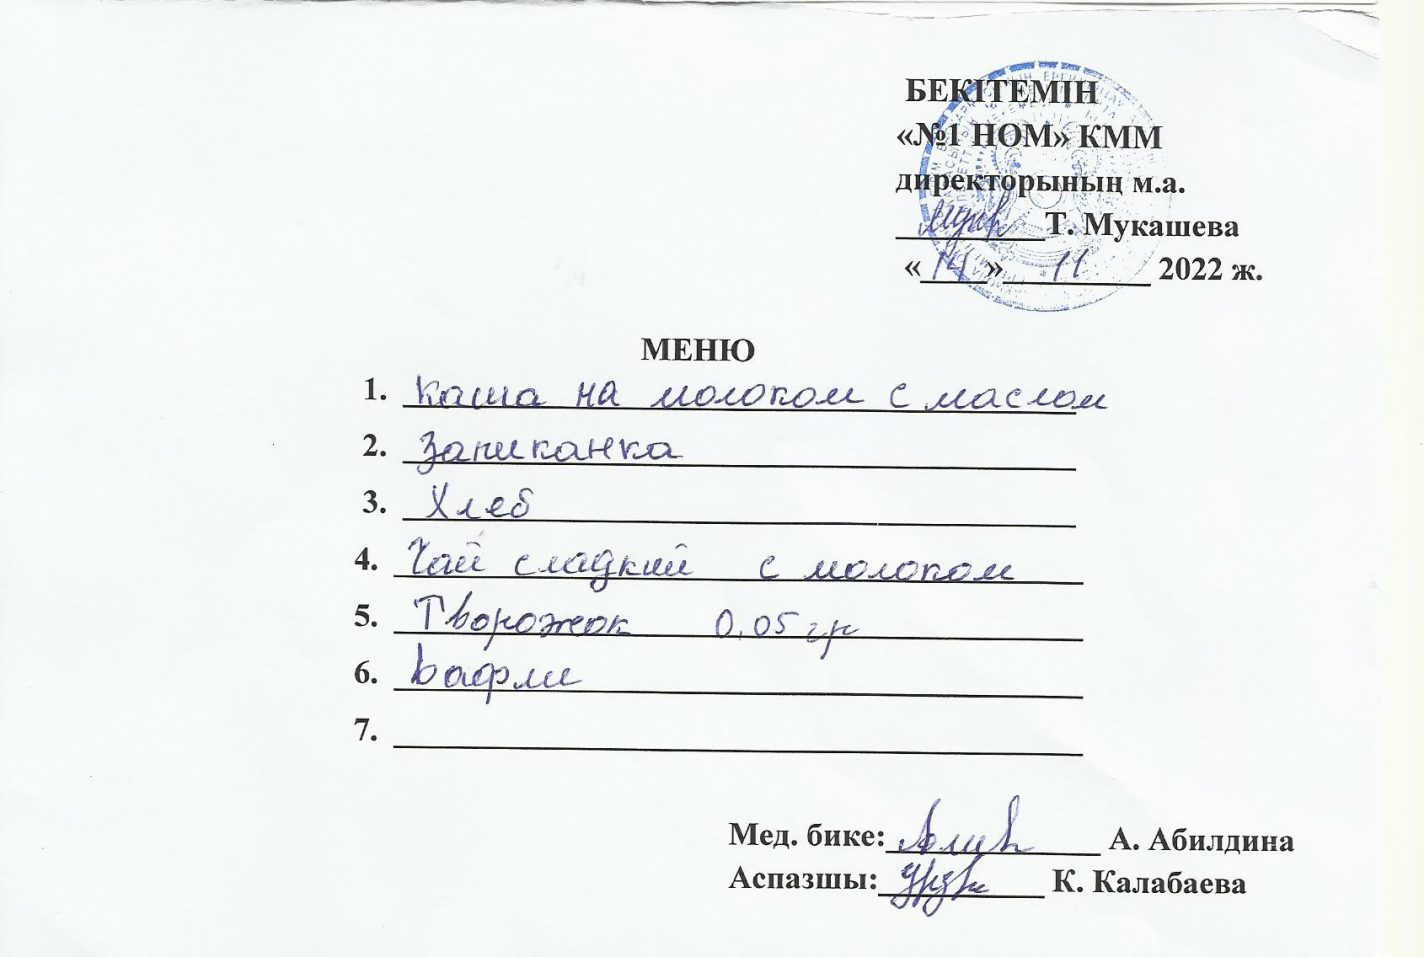 БЕКІТЕМІН
«№1 НОМ» КММ
директорының м.а.
Т. Мукашева
«14» 11 2022 ж.
МЕНЮ
1. Каша на молоком с маслом
2. Запиканка
3. Хлеб
4. Чай сладкий с молоком
5. Творожок 0,05 гр
6. Вафли
7.
Мед. бике: А. Абилдина
Аспазшы: К. Калабаева